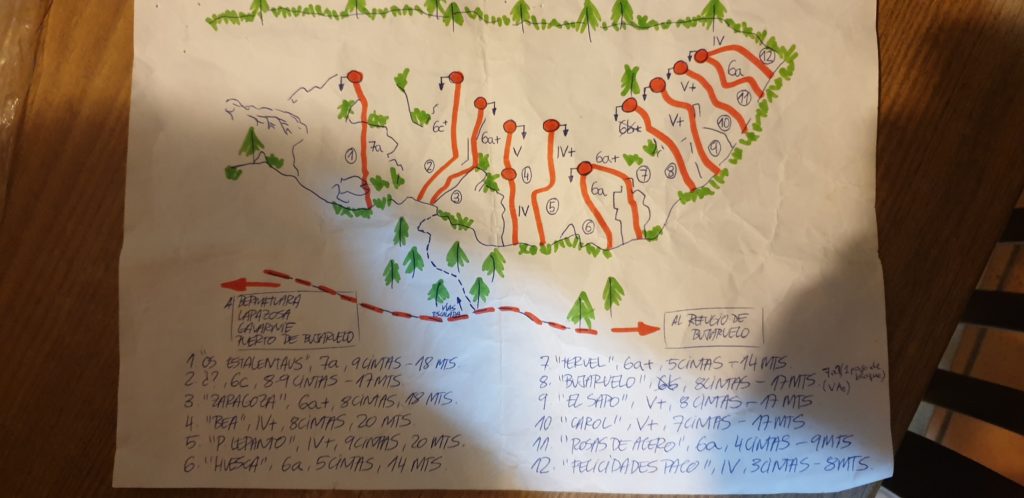 IV
12
6a
11
V+
10
V+
9
8
6c+
2
6a+
3
1
7a
V
4
IV
IV+
5
6a+
7
6a
6
VIAS
ESCALADA
A
LAPAZOSA
GAVARNIE
PUERTO DE BUJARUELO
AL REFUGIO DE
BUJARUELO
1 "OS ESTALENTAUS", 7a, 9 CINTAS - 18 MTS.
2 ¿?, 6c, 8-9 CINTAS - 17 MTS
3 "ZARAGOZA", 6a+, 8 CINTAS, 18 MTS.
4. "BEA", IV+, 8 CINTAS, 20 MTS
5. "P LEPANTO", IV+, 9 CINTAS, 20 MTS.
6. "HUESCA", 6a, 5 CINTAS, 14 MTS
7 "TERUEL", 6a+, 5 CINTAS - 14 MTS
8. "BUJARUELO", 8 CINTAS - 17 MTS
(V Ae)
9 "EL SAPO", V+, 8 CINTAS - 17 MTS
10 "CAROL", V+, 7 CINTAS - 17 MTS
11 "ROSAS DE ACERO", 6a, 4 CINTAS - 9 MTS
12. "FELICIDADES PACO", IV, 3 CINTAS - 8 MTS.